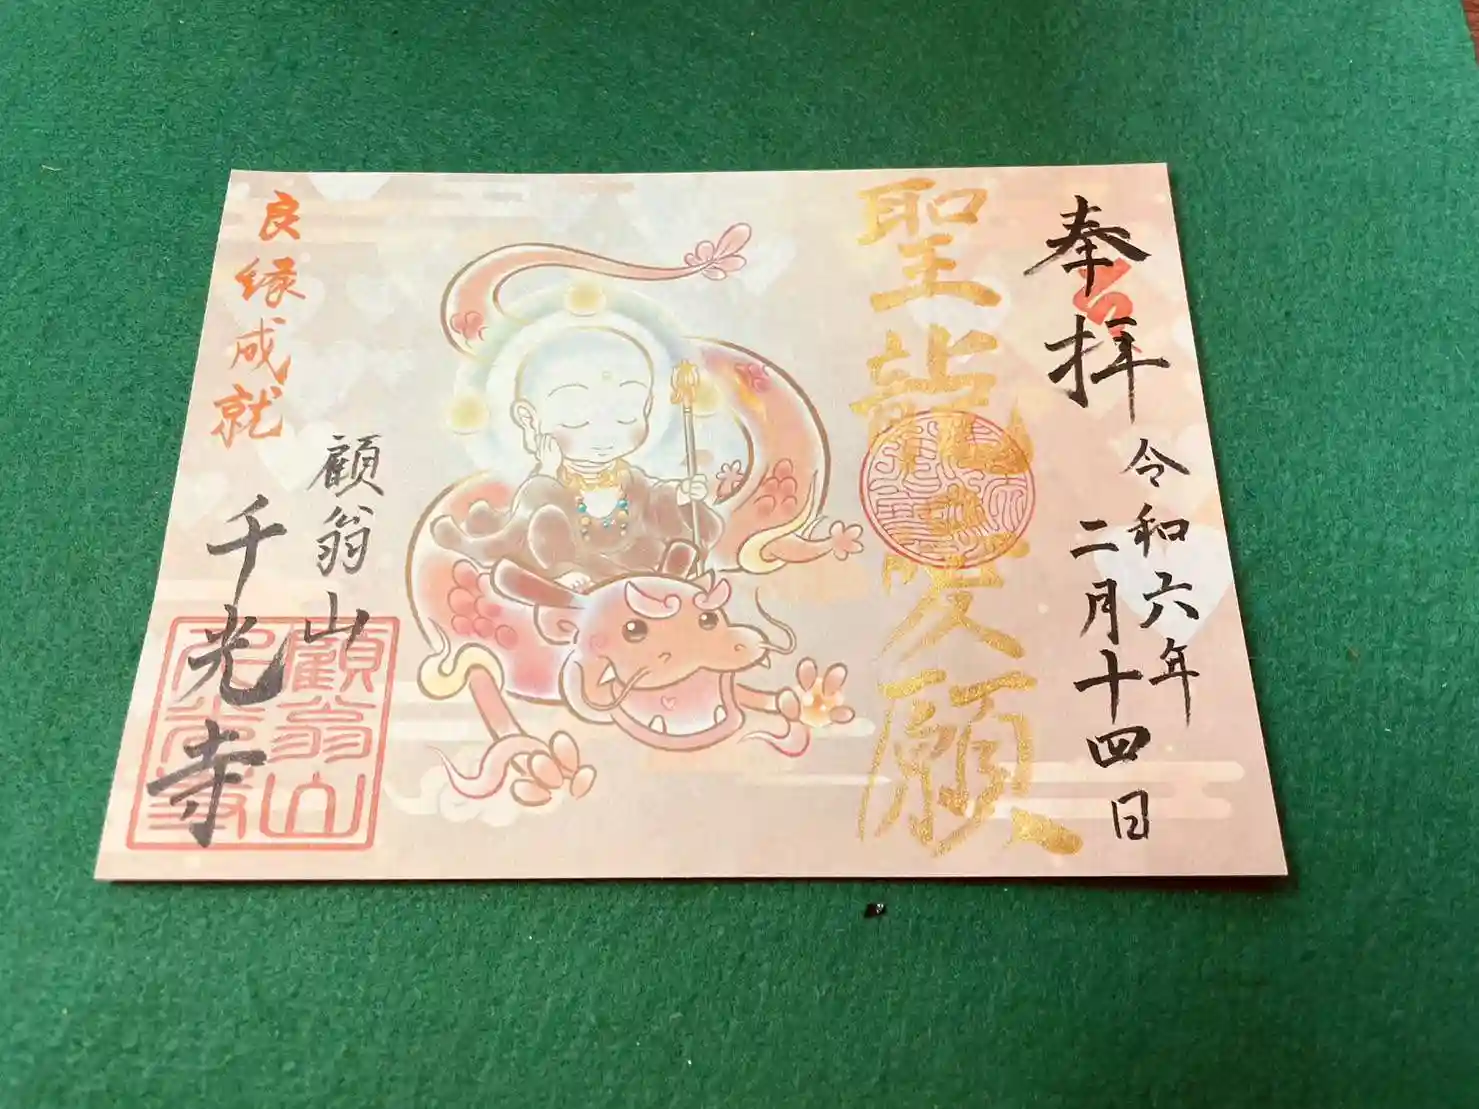 奉拝
令和六年
二月十四日
聖龍愛願
顧翁山
千光寺
良縁成就
顧翁山
千光寺